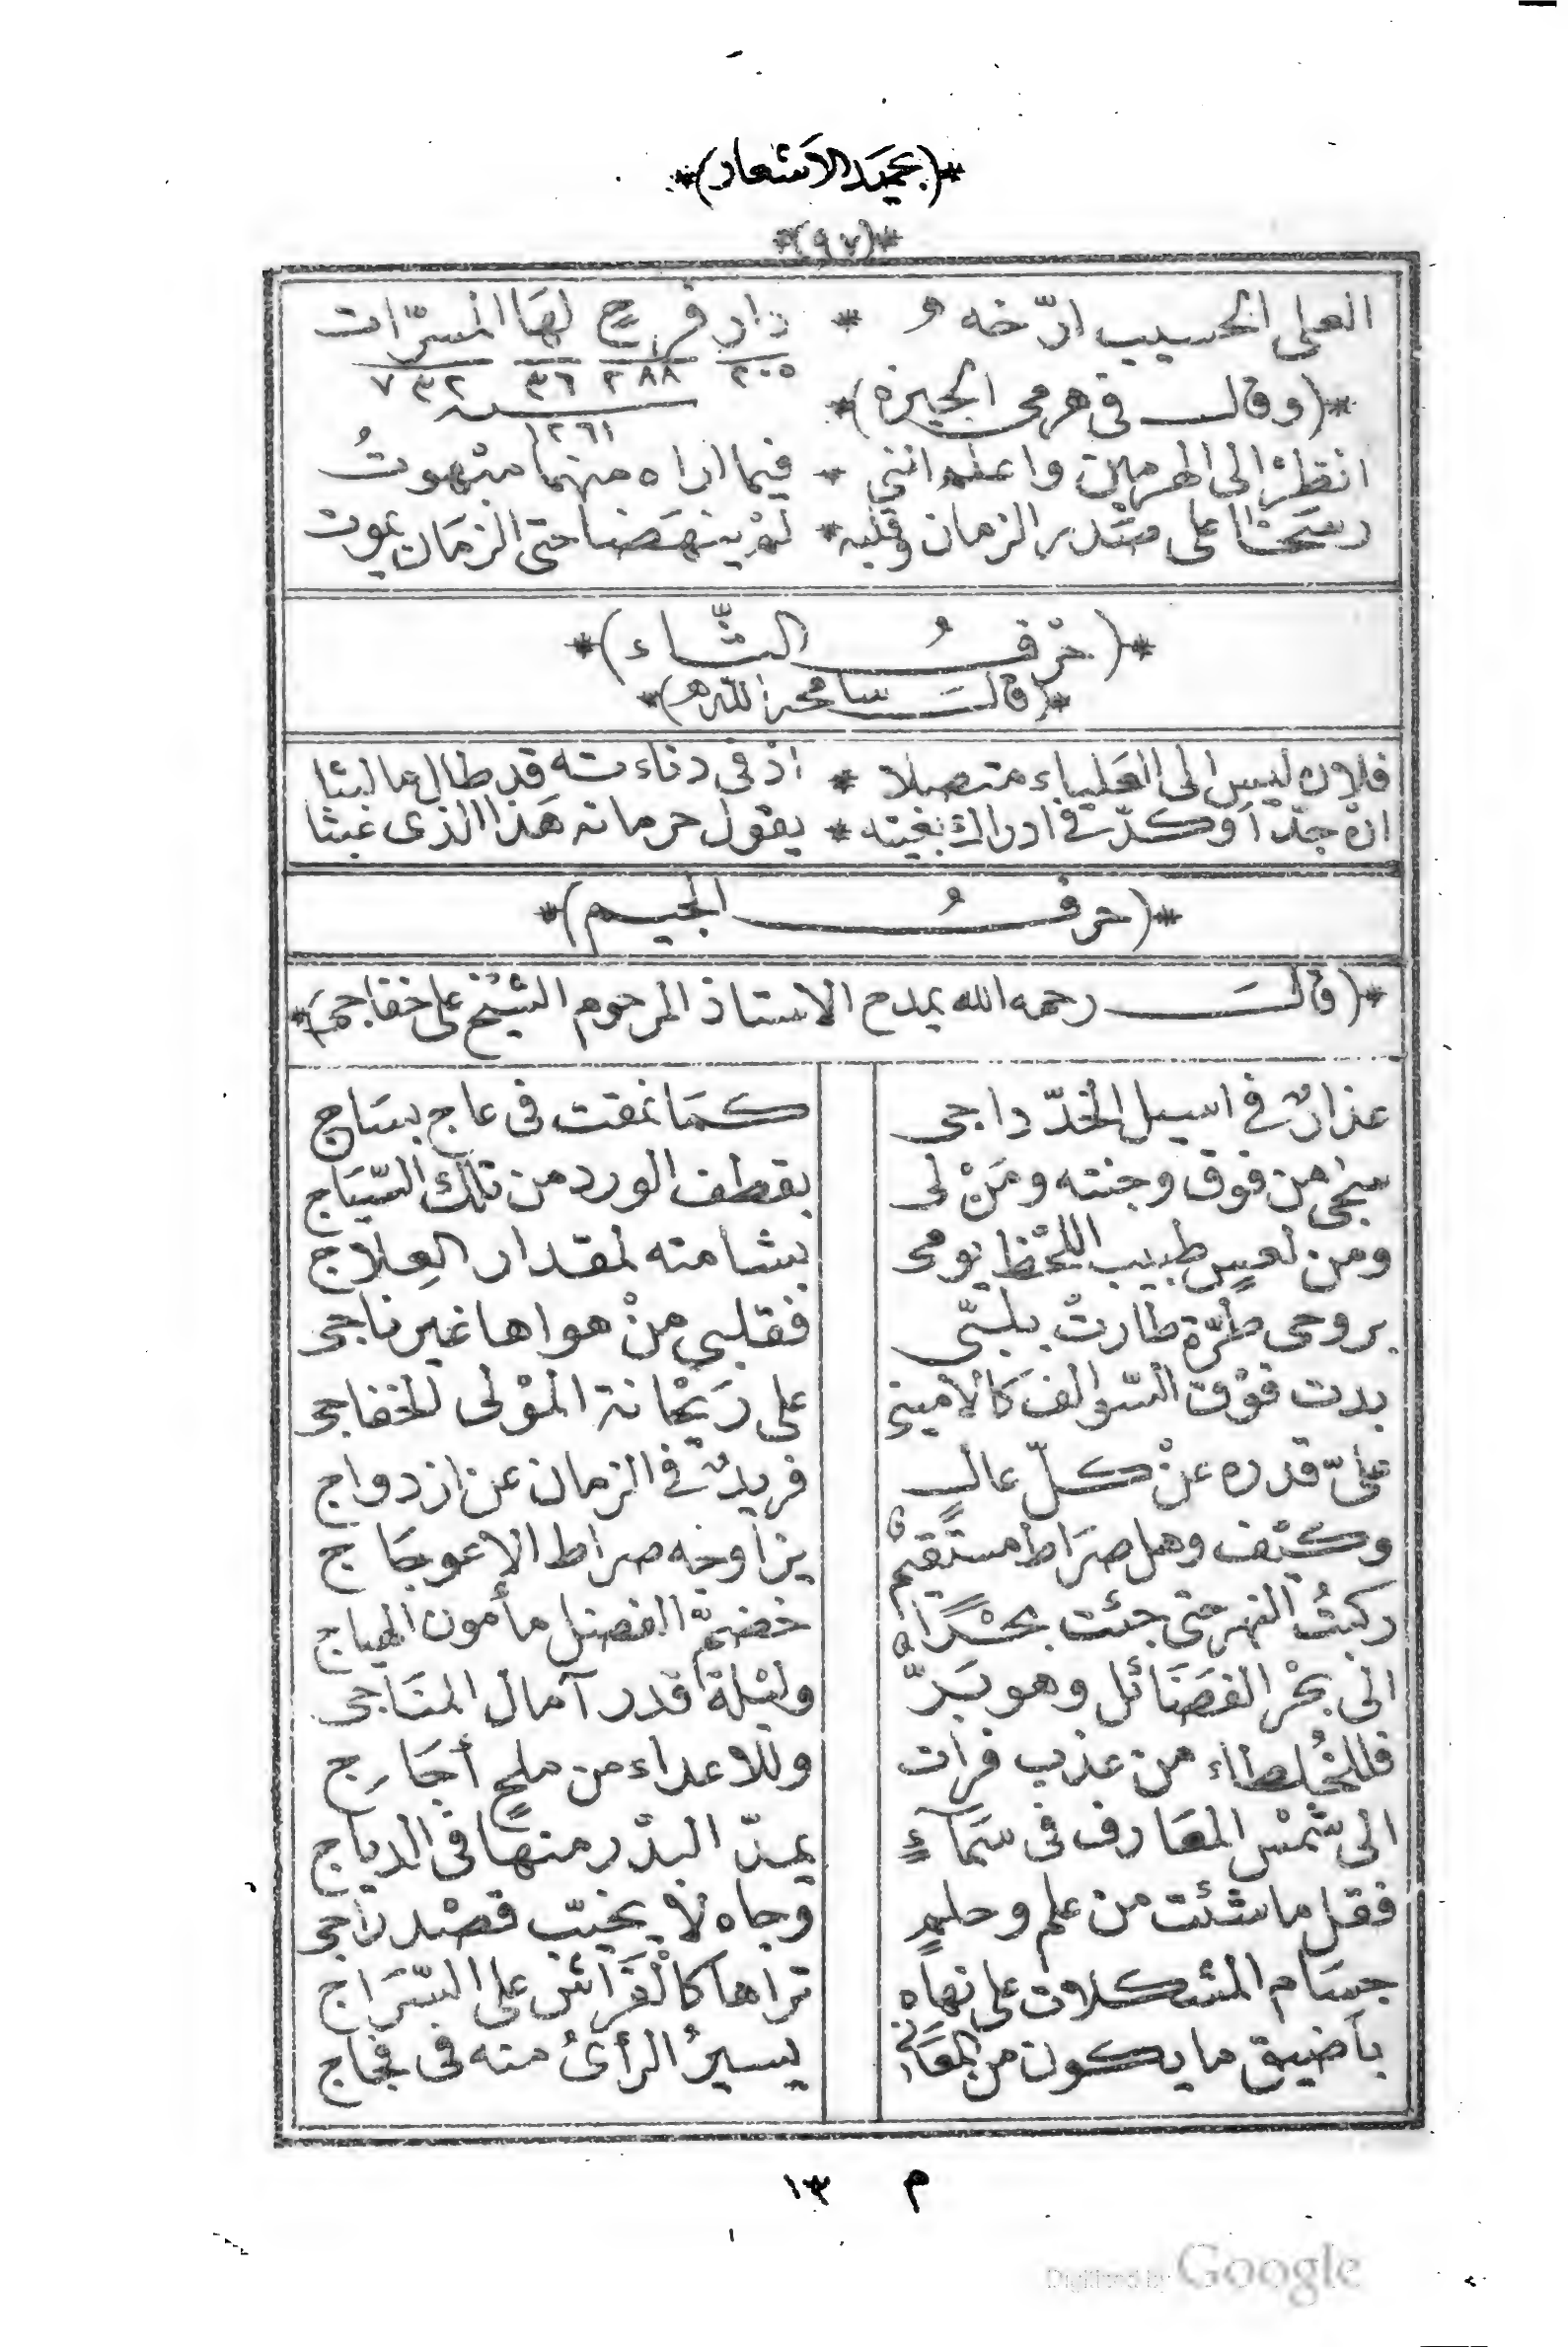 *(بحميد الاشعار)*
*(٩٧)*
العلى الحسيب ارّخه و * دار فرح لها المسرّات
٢٠٥ ٢٨٨ ٣٦ ٧٣٢
*(وقال فى هرمى الجيزة)*
سنة ١٢٦١
انظرْ الى الهرمين واعلم انني * فيما اراه منهما مبهوتُ
رسخا على صدر الزمان وقلبه * لم ينهضا حتى الزمان يموت
*(حرفُ الثّاء)*
*(قال سامحه الله)*
فلان ليس الى العلياء متصلا * اذ فى دناءته قد طال ما لبثا
ان جدّ أوكدّ فى ادراك بغيته * يقول حرمانه هذا الذى عبثا
*(حرفُ الجيم)*
*(قالَ رحمه الله يمدح الاستاذ المرحوم الشيخ على خفاجى)*
عذارٌ فى اسيل الخدّ داجى كما نمقت فى عاج بساج
سجى من فوق وجنته ومَنْ لى بقطف الورد من تلك السّياج
ومن لعسٍ طبيب اللحْظ يومى بشامته لمقدار العِلاج
بروحى طرّة طارتْ بلبّى فقلبي منْ هواها غير ناجى
بدت فوْق السّوالف كالأمينى على رَيْحانة الموْلى الخفاجى
علىّ قدره عنْ كلّ عالٍ فريدٌ فى الزمان عن ازدواج
وكيْف وهل صرَاط مستقيمٌ يزاوجه صراط الاعوجَاج
ركبتُ النهر حتى جئت بحْرًا خضمّ الفضل مأمون الهياج
الى بحْر الفضَائل وهو بَرّ وليْلة قدر آمال المنَاجى
فللخُلطاء من عذب فرات وللاعداء من ملحٍ أجَاج
الى شمْس المعَارف فى سمَآءٍ يمدّ البدْر منها فى الدياج
فقل ما شئت من علم وحلمٍ وجاه لا يخيّب قصْد راجى
جسَام المشكلات على نهاه تراها كالْفَراش على السّرَاج
باَضيق ما يكون من المعَانى يسيرُ الرأىُ منه فى فجاج
م ١٣
Digitized by Google